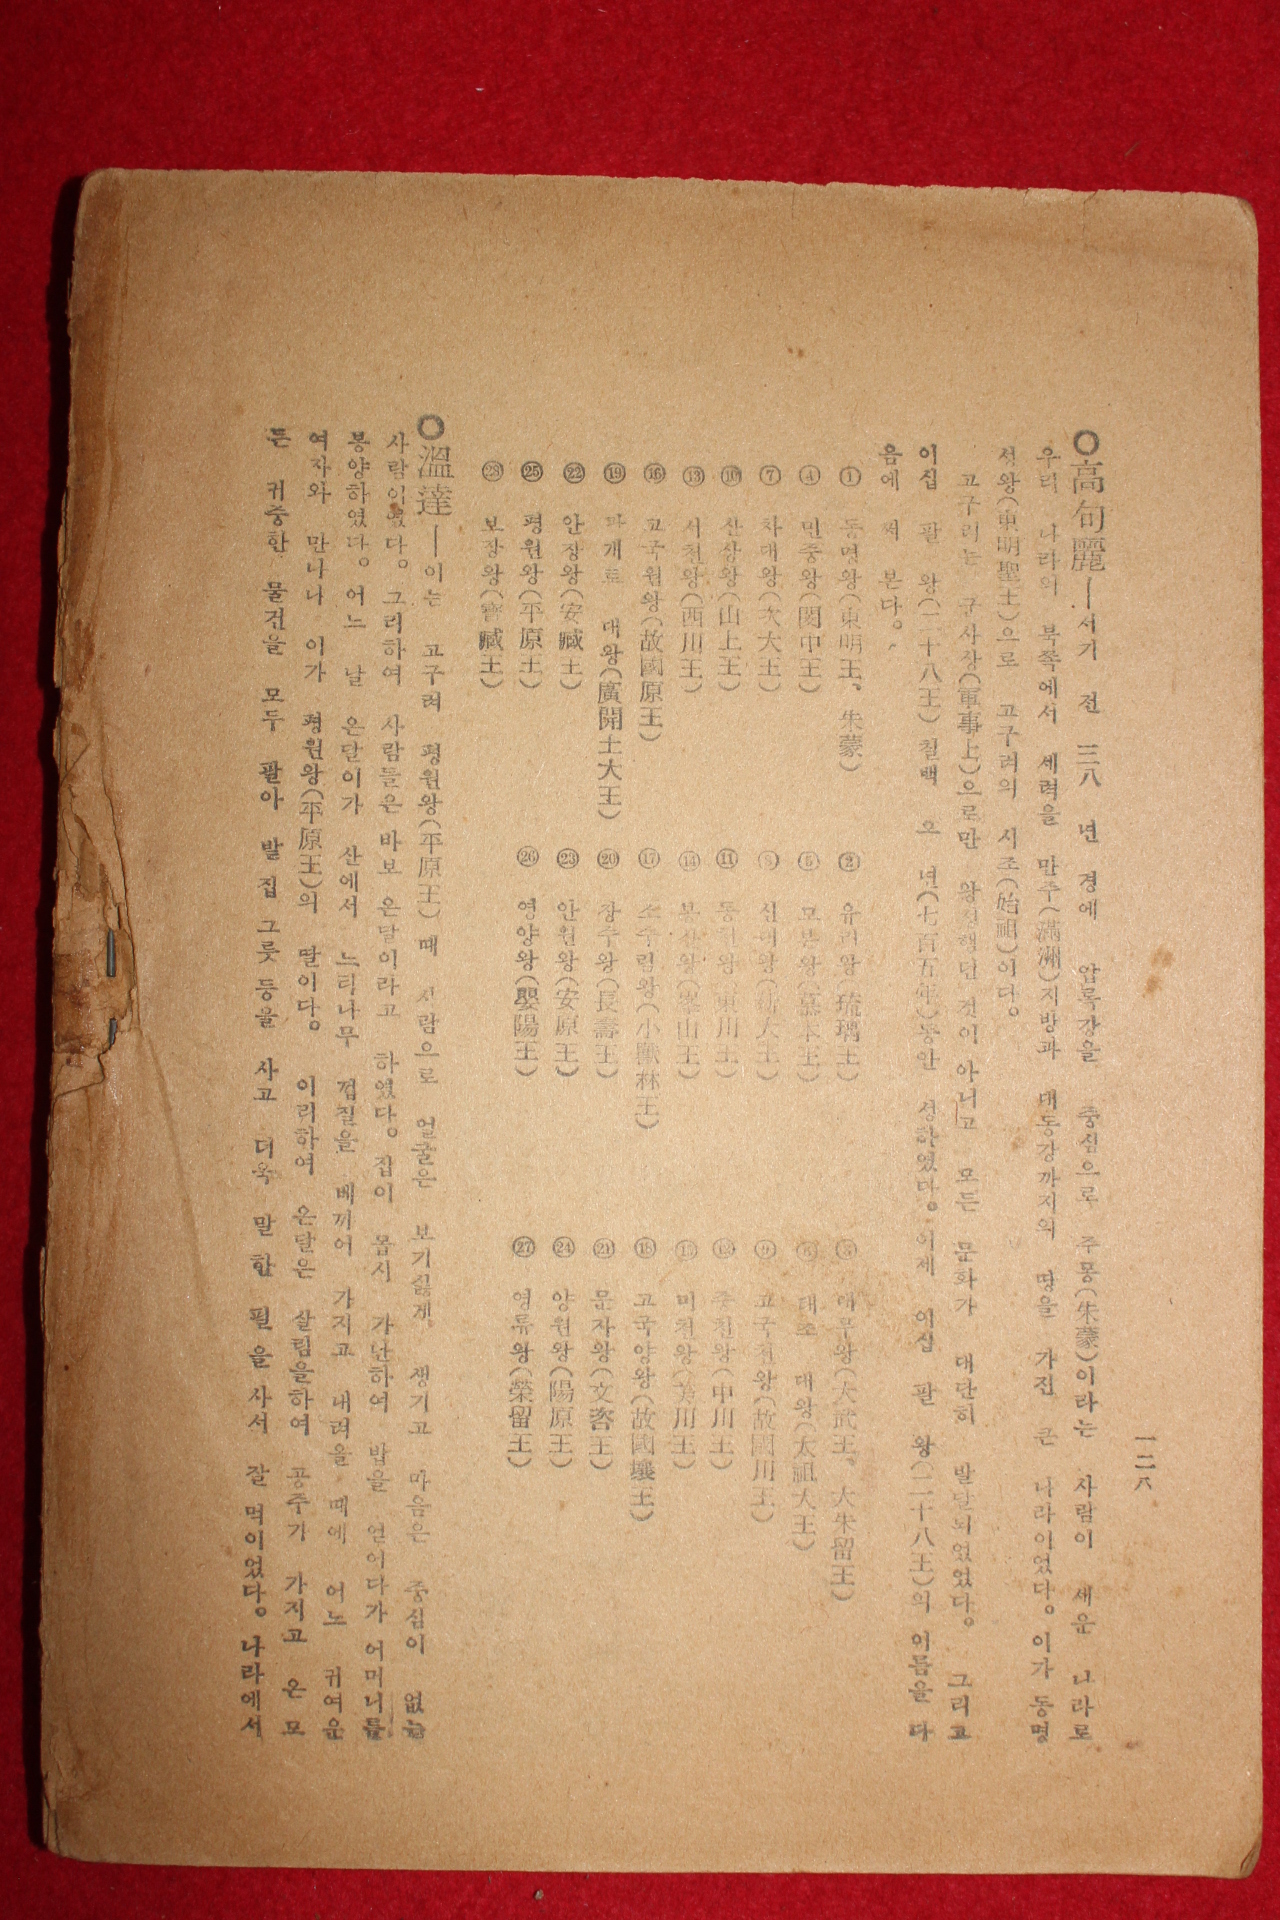 一二八
○高句麗―서기 전 三八 년 경에 압록강을 중심으로 주몽(朱蒙)이라는 사람이 세운 나라로
우리 나라의 북쪽에서 세력을 만주(滿洲)지방과 대동강까지의 땅을 가진 큰 나라이었다。이가 동명
성왕(東明聖王)으로 고구려의 시조(始祖)이다。
고구려는 군사상(軍事上)으로만 왕성했던 것이 아니고 모든 문화가 대단히 발달되었었다。 그리고
이십 팔 왕(二十八王) 칠백 오 년(七百五年)동안 성하였다。이제 이십 팔 왕(二十八王)의 이름을 다
음에 써 본다。
① 동명왕(東明王、朱蒙) ② 유리왕(琉璃王) ③ 대무왕(大武王、大朱留王)
④ 민중왕(閔中王) ⑤ 모본왕(慕本王) ⑥ 태조 대왕(太祖大王)
⑦ 차대왕(次大王) ⑧ 신대왕(新大王) ⑨ 고국천왕(故國川王)
⑩ 산상왕(山上王) ⑪ 동천왕(東川王) ⑫ 중천왕(中川王)
⑬ 서천왕(西川王) ⑭ 봉산왕(烽山王) ⑮ 미천왕(美川王)
⑯ 고국원왕(故國原王) ⑰ 소수림왕(小獸林王) ⑱ 고국양왕(故國壤王)
⑲ 마개토 대왕(廣開土大王) ⑳ 장수왕(長壽王) ㉑ 문자왕(文咨王)
㉒ 안장왕(安臧王) ㉓ 안원왕(安原王) ㉔ 양원왕(陽原王)
㉕ 평원왕(平原王) ㉖ 영양왕(嬰陽王) ㉗ 영류왕(榮留王)
㉘ 보장왕(寶臧王)
○溫達―이는 고구려 평원왕(平原王) 때 사람으로 얼굴은 보기싫게 생기고 마음은 중심이 없는
사람이었다。그리하여 사람들은 바보 온달이라고 하였다。집이 몹시 가난하여 밥을 얻어다가 어머니를
봉양하였다。어느 날 온달이가 산에서 느티나무 껍질을 베끼어 가지고 내려올 때에 어느 귀여운
여자와 만나니 이가 평원왕(平原王)의 딸이다。 이리하여 온달은 살림을하여 공주가 가지고 온 모
든 귀중한 물건을 모두 팔아 발 집 그릇 등을 사고 더욱 말 한 필을 사서 잘 먹이었다。나라에서